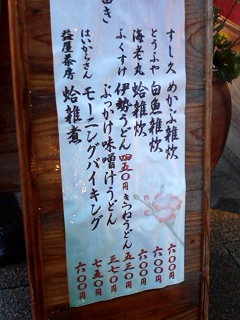 すし久 めかぶ雑炊 六〇〇円
とうふや 白魚雑炊 六〇〇円
海老丸 蛤雑炊 六〇〇円
ふくすけ 伊勢うどん 四五〇円 きつねうどん 五三〇円
ぶっかけ味噌汁うどん 三七〇円
はいからさん モーニングバイキング 七五〇円
益屋茶房 蛤雑煮 六〇〇円